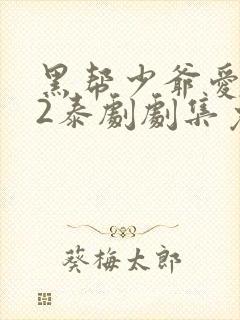 黑帮少爷爱
2泰劇劇集
葵梅太郎